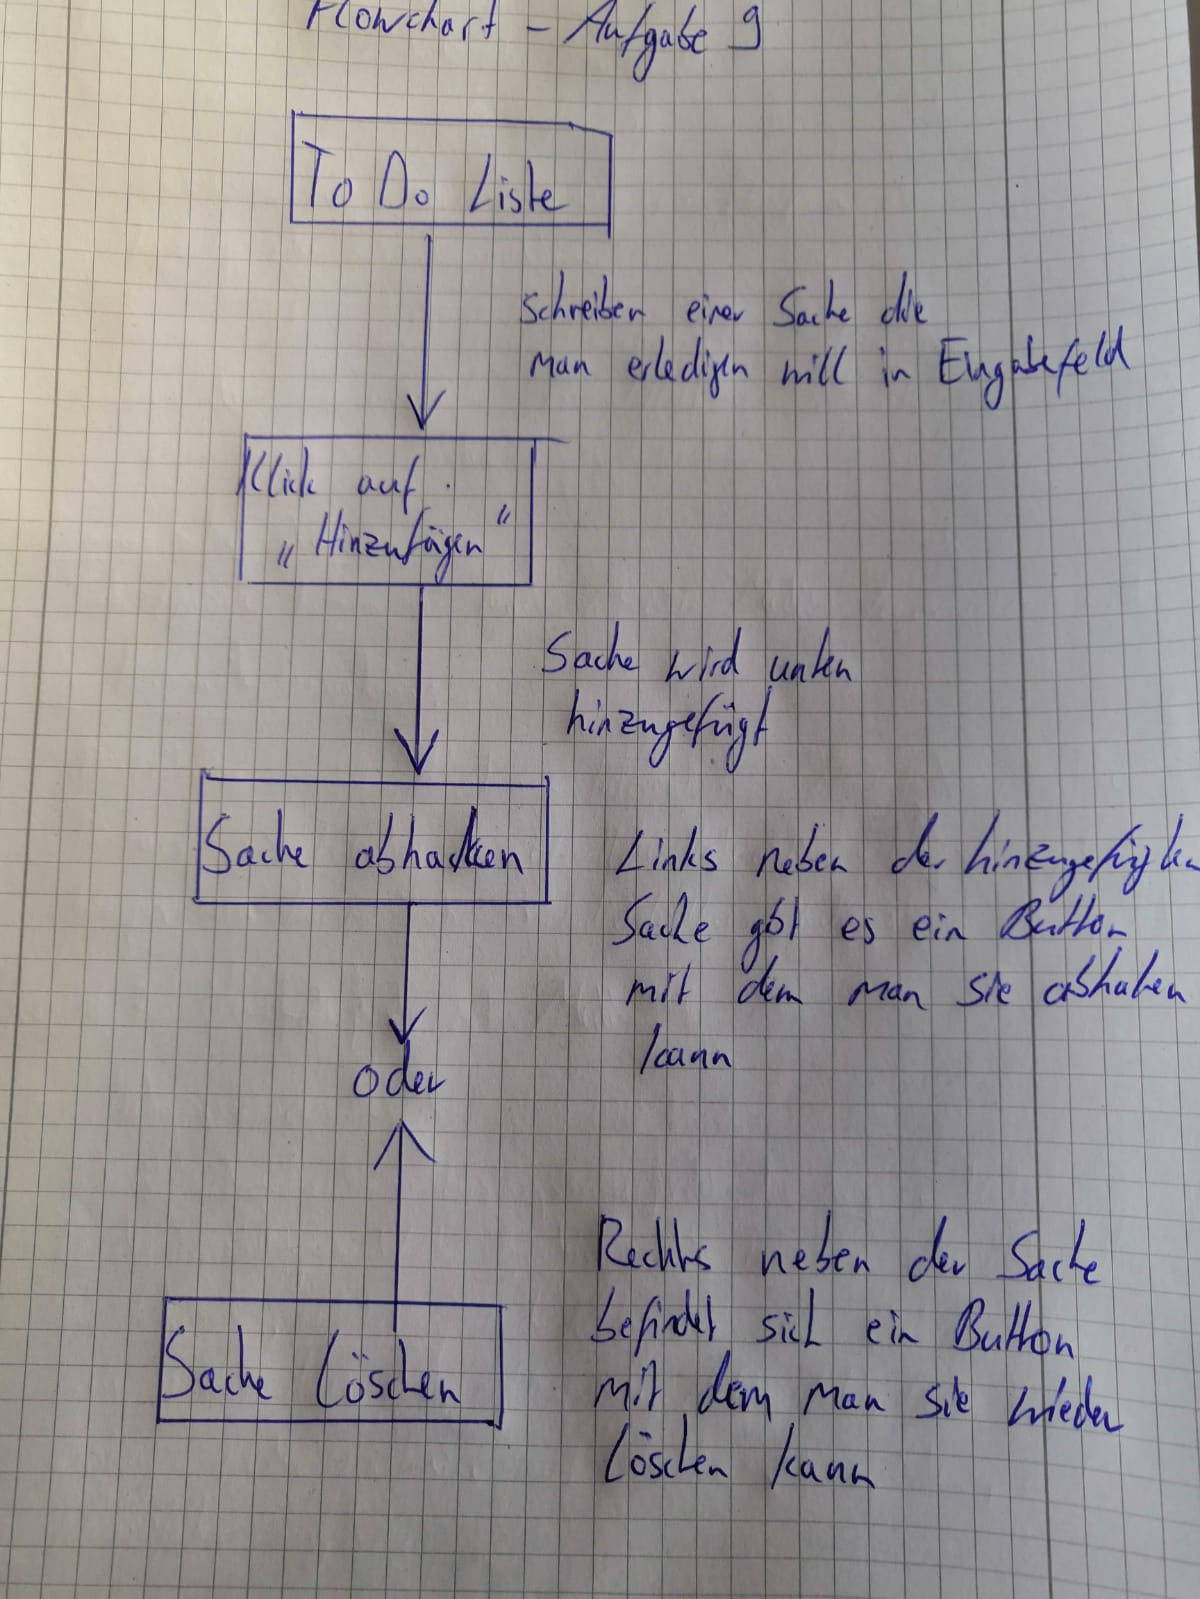 Flowchart - Aufgabe 9
To Do Liste
Schreiben einer Sache die
man erledigen will in Eingabefeld
Klick auf
„Hinzufügen"
Sache wird unten
hinzugefügt
Sache abhacken
Links neben der hinzugefügten
Sache gibt es ein Button
mit dem man sie abhaken
kann
oder
Rechts neben der Sache
befindet sich ein Button
mit dem man sie wieder
Löschen kann
Sache Löschen